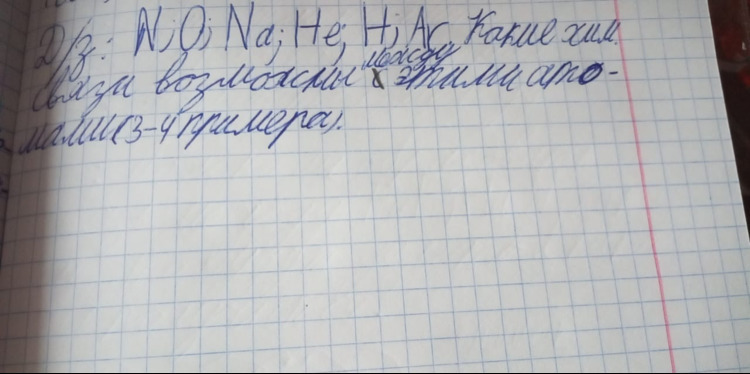 Д/з: N; O; Na; He; H; Ar. Какие хим.
связи возможны между этими ато-
мами (3-4 примера).